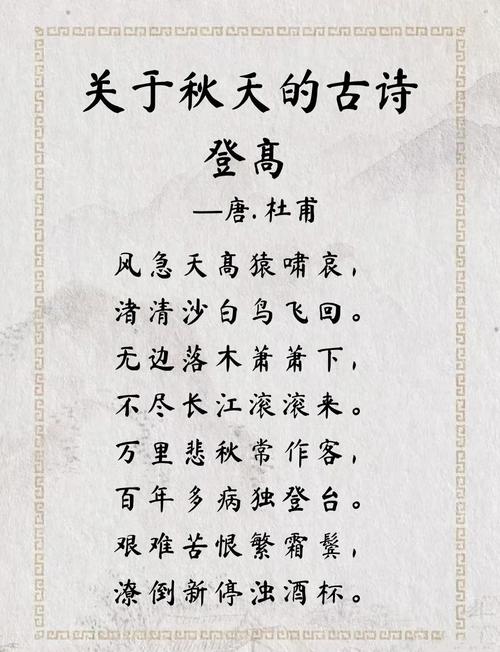 关于秋天的古诗
登高
—唐.杜甫
风急天高猿啸哀，
渚清沙白鸟飞回。
无边落木萧萧下，
不尽长江滚滚来。
万里悲秋常作客，
百年多病独登台。
艰难苦恨繁霜鬓，
潦倒新停浊酒杯。